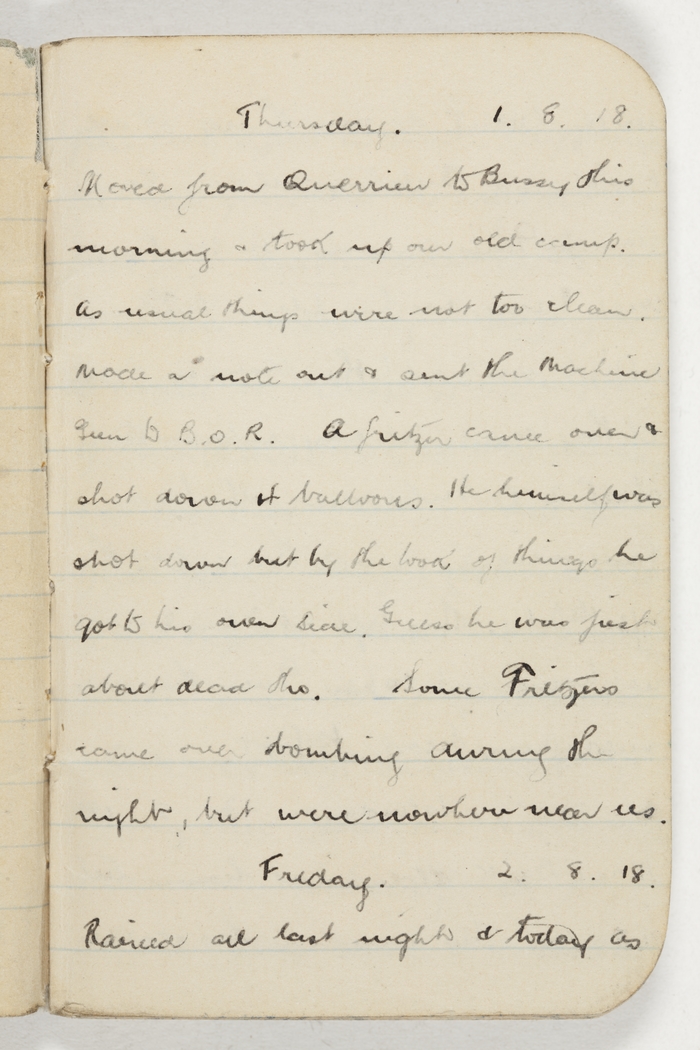 Thursday. 1. 8. 18.
Moved from Querrieu to Bussy this
morning & took up our old camp.
As usual things were not too clean.
Made a note out & sent the Machine
Gun to B.O.R. A fritzer came over &
shot down 4 balloons. He himself was
shot down but by the look of things he
got to his own side. Guess he was just
about dead tho. Some Fritzers
came over bombing during the
night, but were nowhere near us.
Friday. 2. 8. 18.
Rained all last night & today as